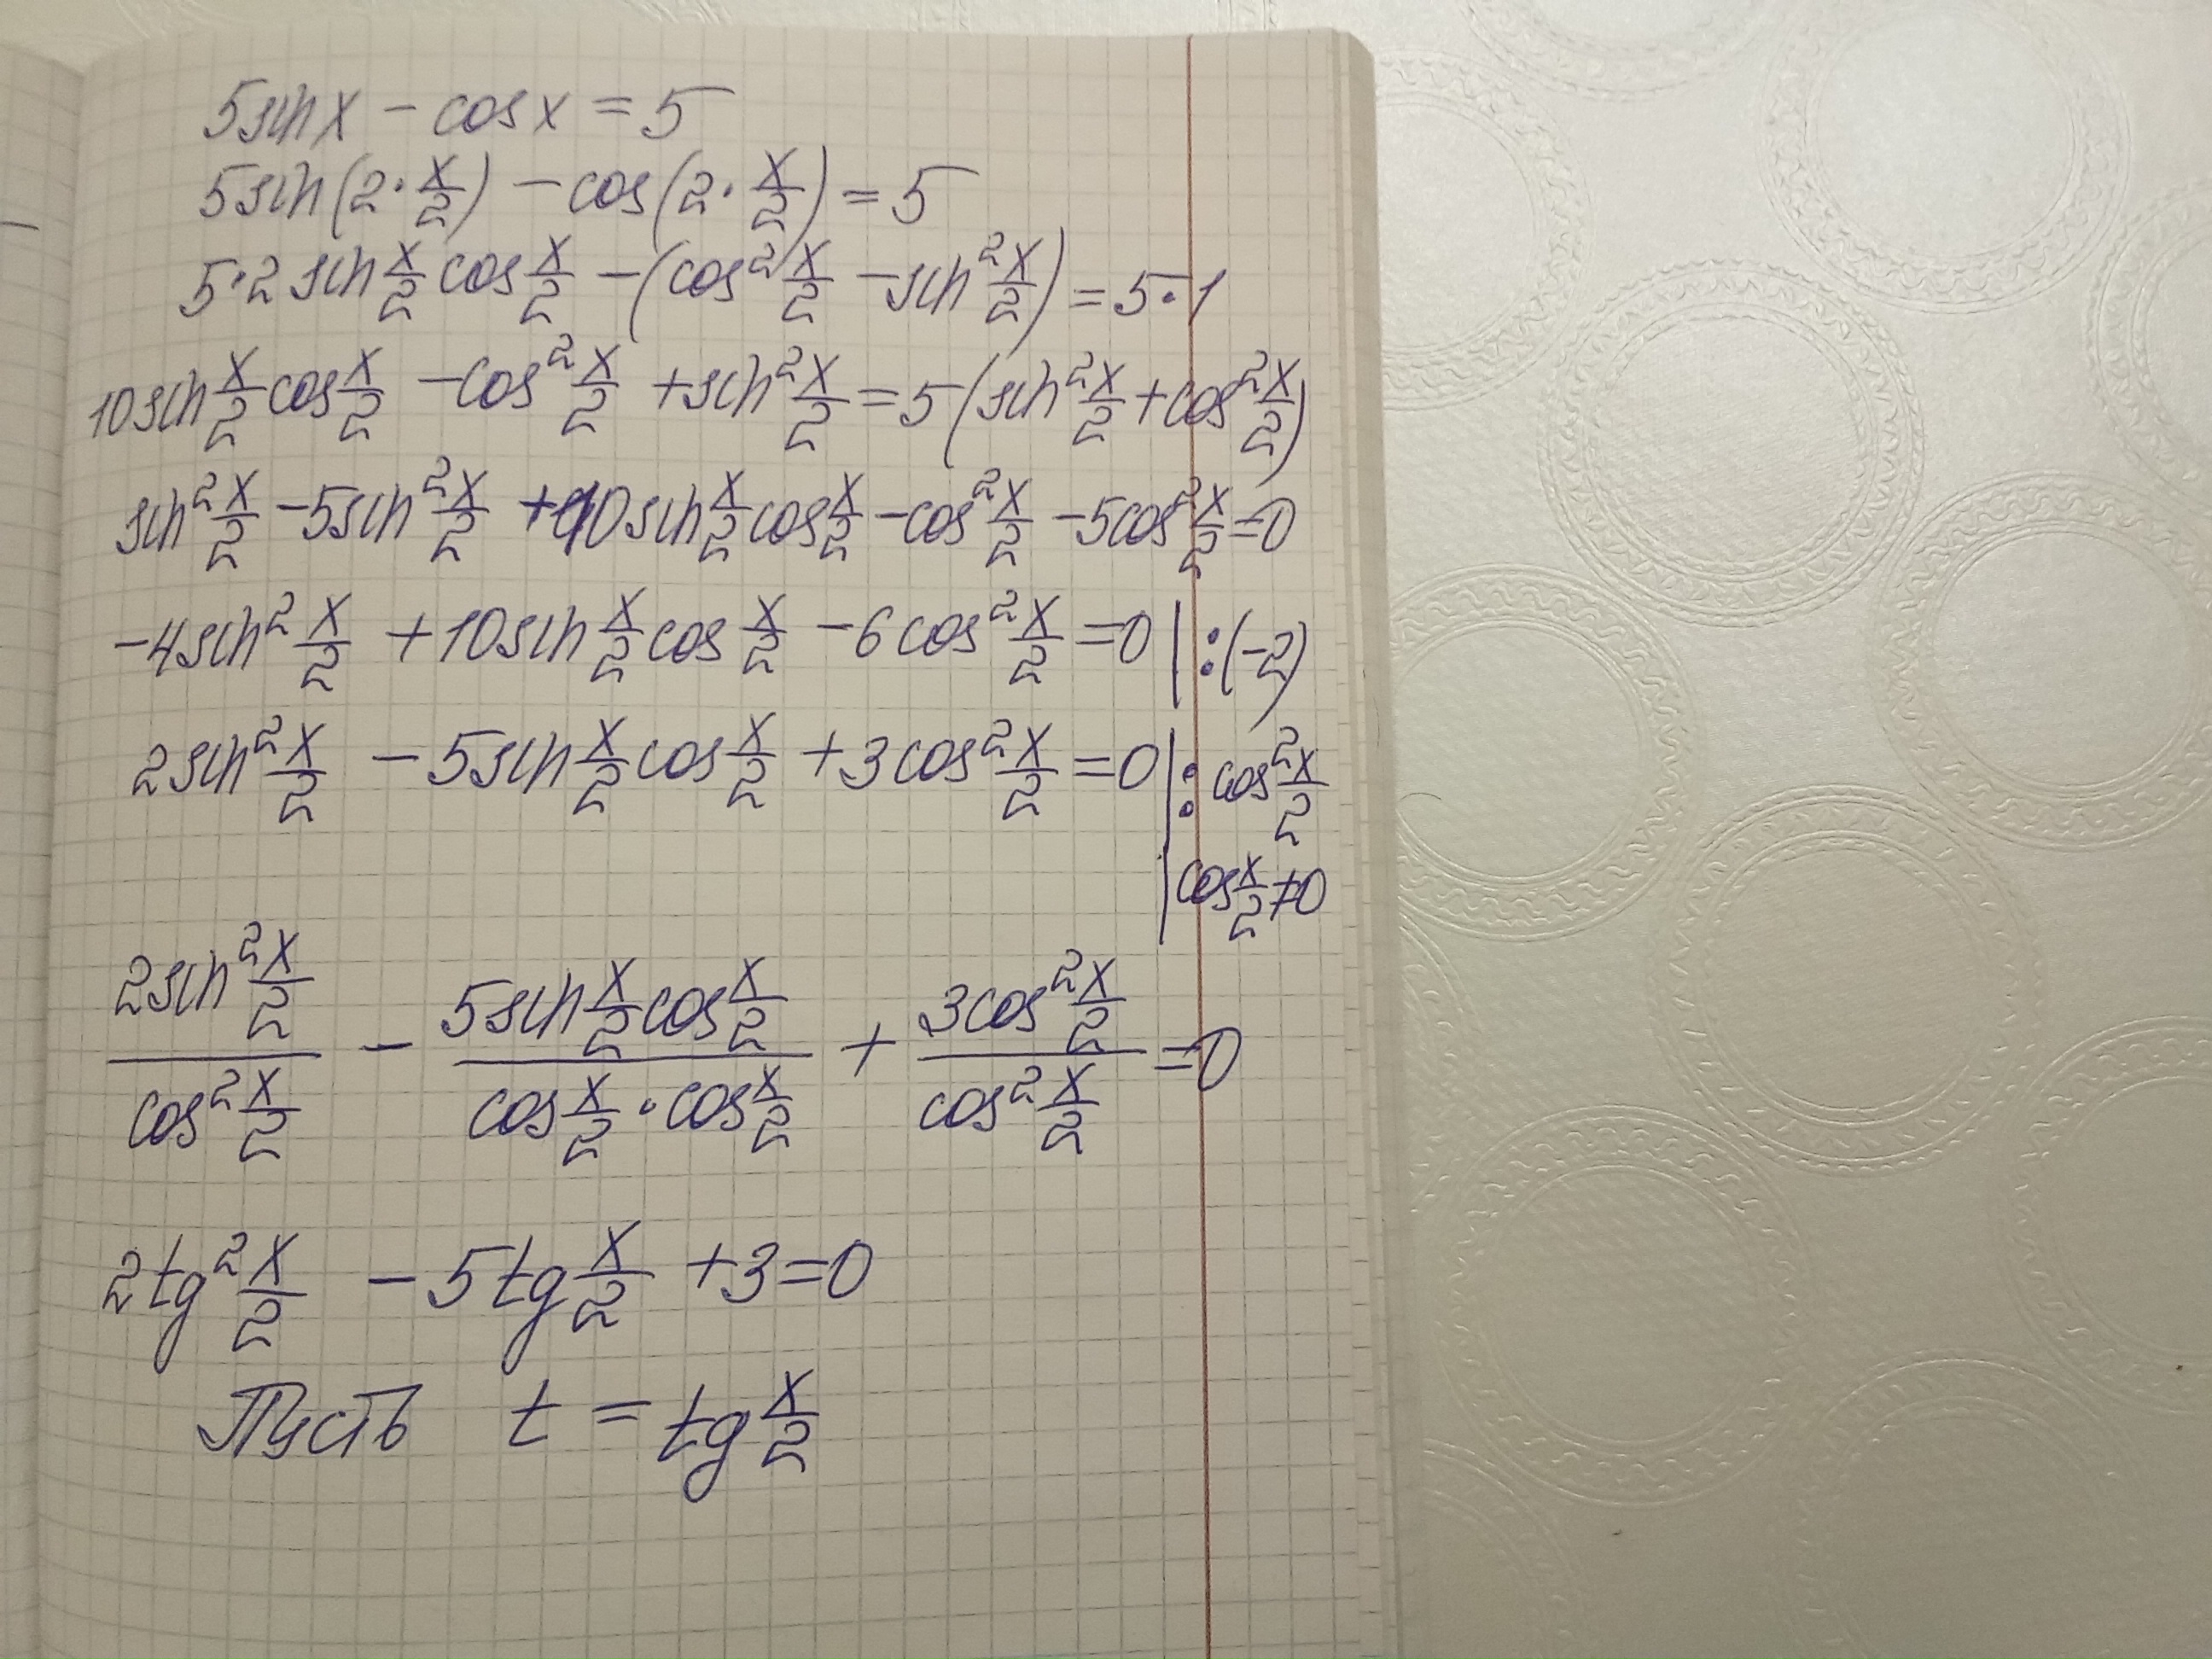 5sin x − cos x = 5
5sin(2·x/2) − cos(2·x/2) = 5
5·2 sin x/2 cos x/2 − (cos² x/2 − sin² x/2) = 5·1
10sin x/2 cos x/2 − cos² x/2 + sin² x/2 = 5(sin² x/2 + cos² x/2)
sin² x/2 − 5sin² x/2 + 10sin x/2 cos x/2 − cos² x/2 − 5cos² x/2 = 0
−4sin² x/2 + 10sin x/2 cos x/2 − 6cos² x/2 = 0 | :(−2)
2sin² x/2 − 5sin x/2 cos x/2 + 3cos² x/2 = 0 | : cos² x/2
| cos x/2 ≠ 0
(2sin² x/2)/(cos² x/2) − (5sin x/2 cos x/2)/(cos x/2 · cos x/2) + (3cos² x/2)/(cos² x/2) = 0
2tg² x/2 − 5tg x/2 + 3 = 0
Пусть t = tg x/2